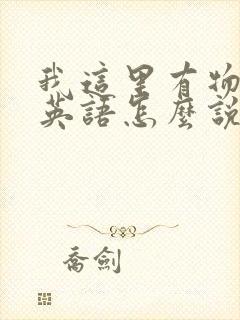 我這里有物
英語怎麼說
喬劍